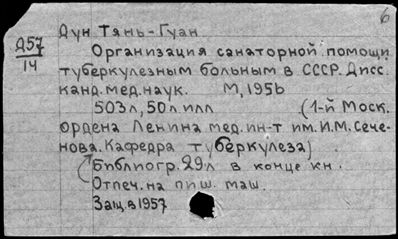 6
Дун Тянь-Гуан
Д57
14
Организация санаторной помощи
туберкулезным больным в СССР. Дисс.
канд. мед. наук. М, 1956
503л, 50л илл (1-й Моск.
ордена Ленина мед. ин-т им. И.М. Сече-
нова. Кафедра туберкулеза)
Библиогр. 29л в конце кн.
Отпеч. на пиш. маш.
Защ. в 1957